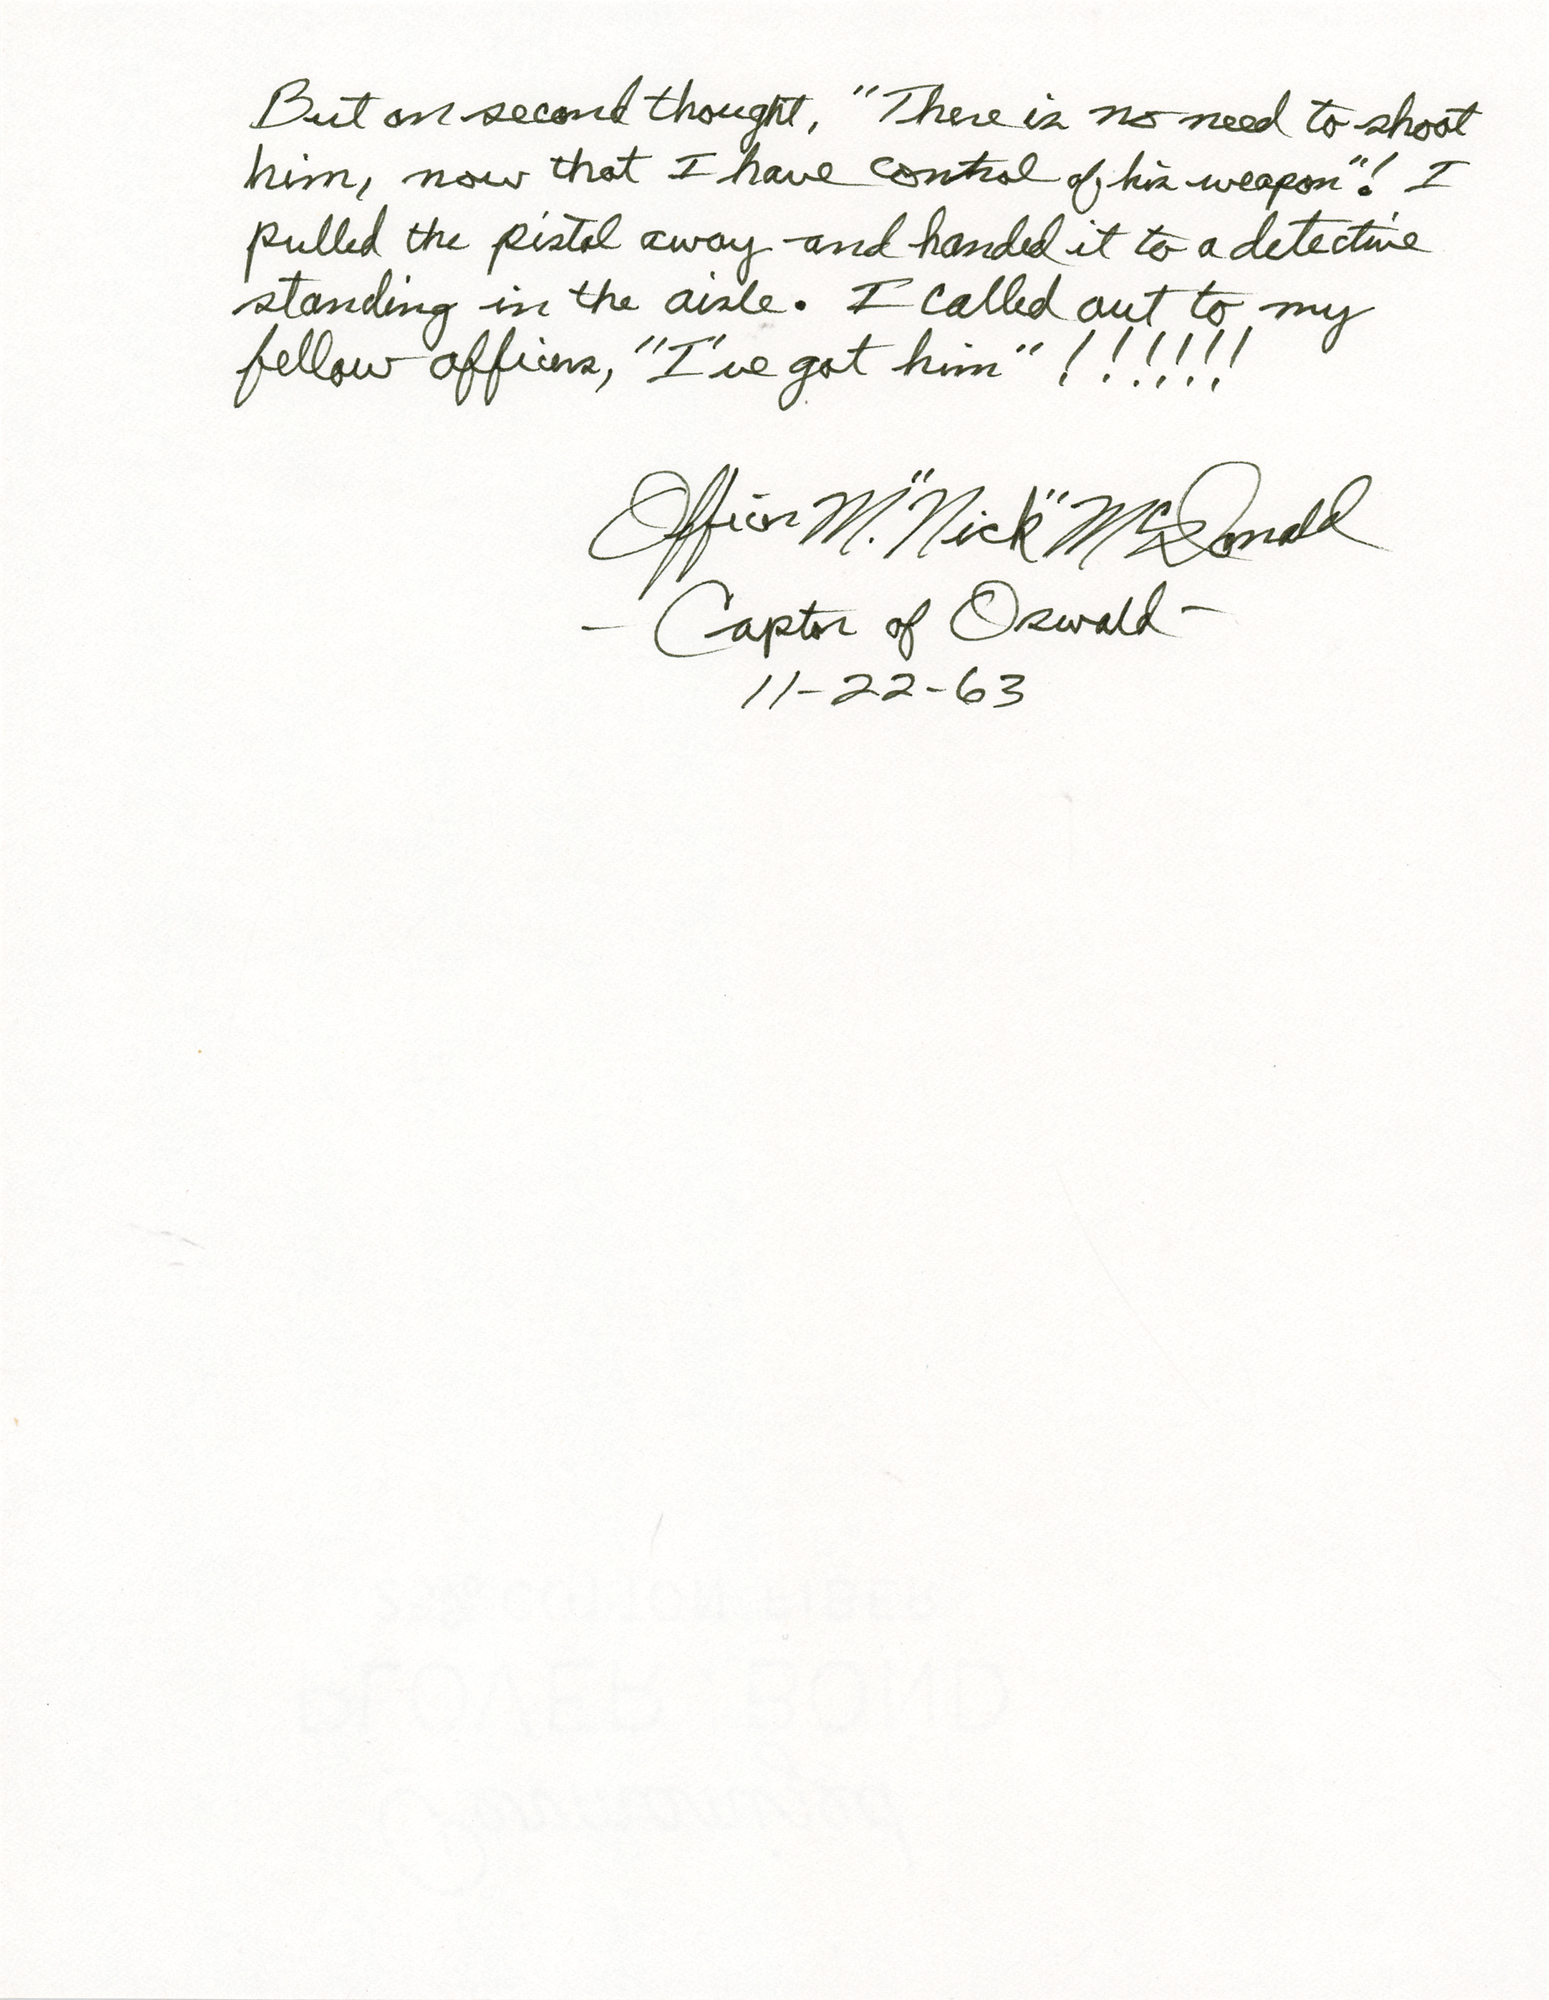 But on second thought, "There is no need to shoot
him, now that I have control of his weapon"! I
pulled the pistol away and handed it to a detective
standing in the aisle. I called out to my
fellow officers, "I've got him" ! ! ! ! ! !
Officer M. "Nick" McDonald
- Captor of Oswald -
11-22-63